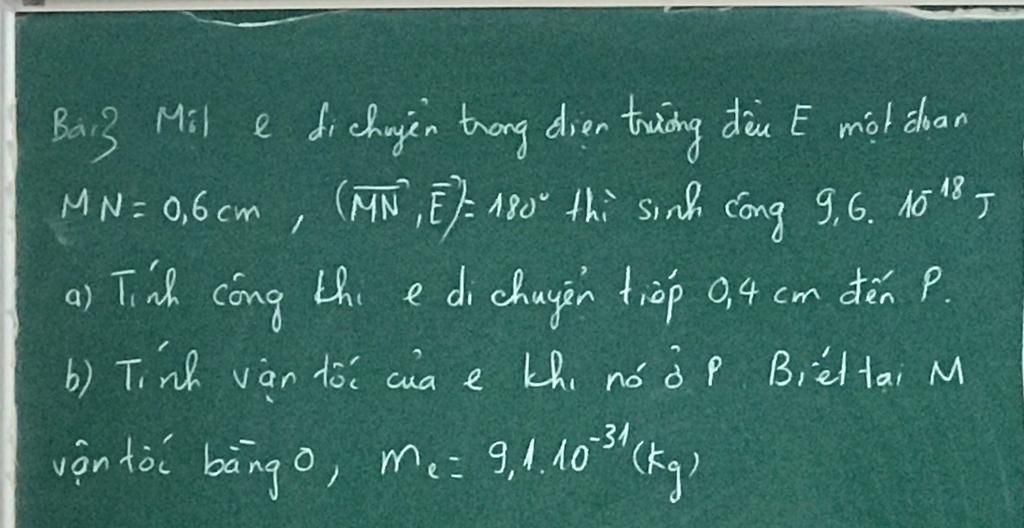 Bài 3 Một e di chuyển trong điện trường đều E một đoạn
MN = 0,6 cm , (\overrightarrow{MN}, \overrightarrow{E}) = 180° thì sinh công 9,6. 10⁻¹⁸ J
a) Tính công khi e di chuyển tiếp 0,4 cm đến P.
b) Tính vận tốc của e khi nó ở P. Biết tại M
vận tốc bằng 0, mₑ = 9,1.10⁻³¹ (kg)